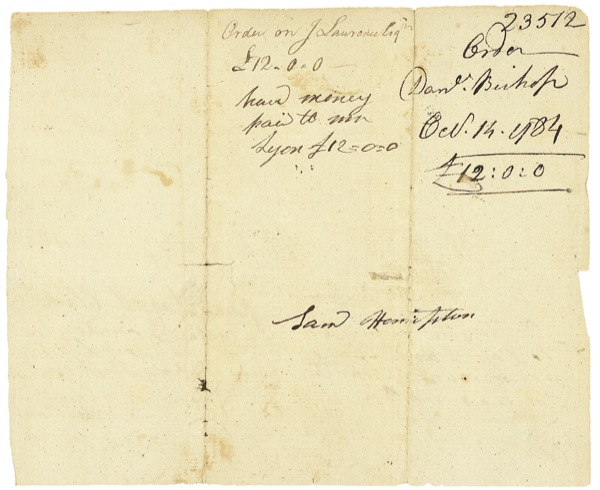 Order on J Lawrence Esqr
£12-0-0
hard money
paid to mr
Lyon £12=0=0
23512
Order
Danl. Bishop
Oct. 14. 1784
£12:0:0
Sam